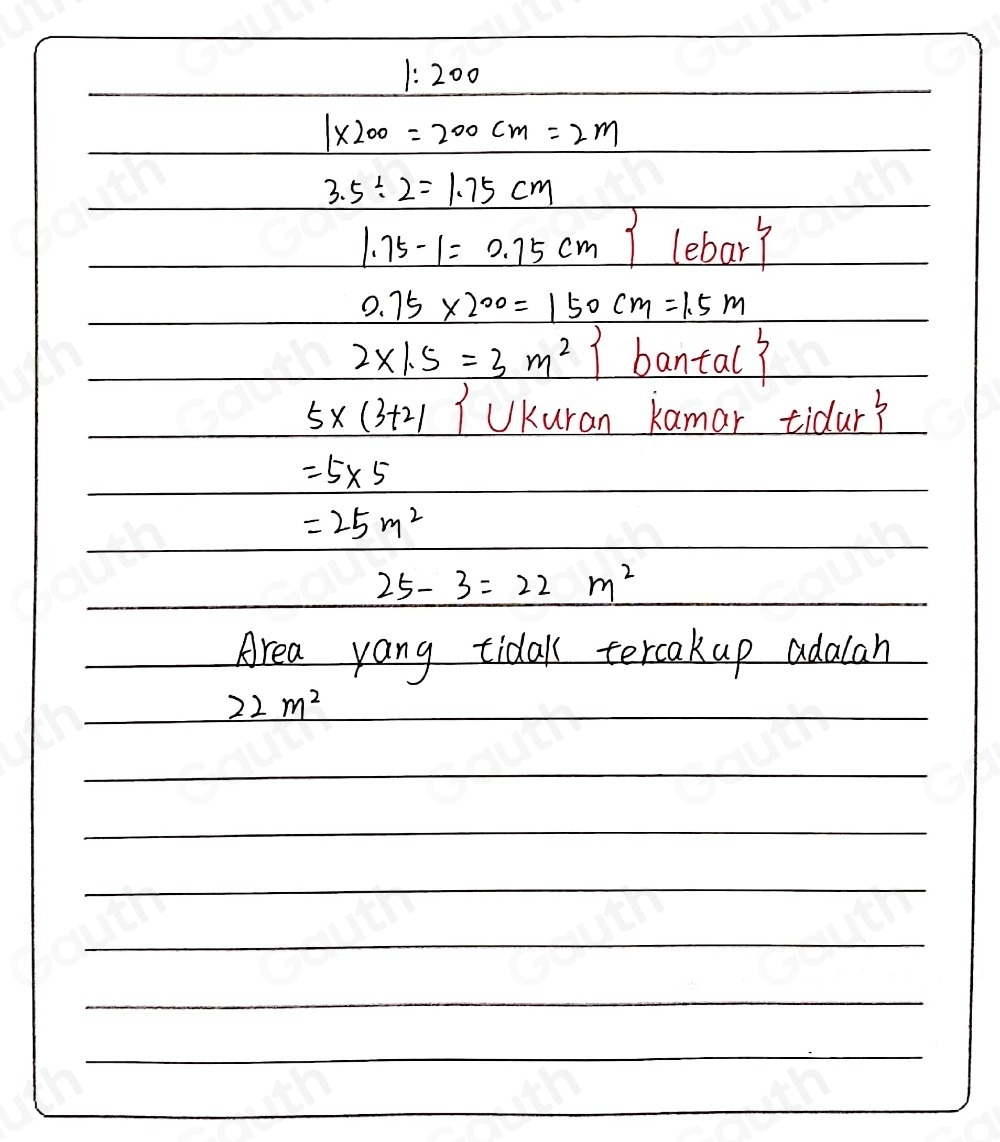 1:200
1×200 = 200 cm = 2m
3.5÷2= 1.75 cm
1.75-1= 0.75 cm } lebar }
0.75 ×200= 150 cm =1.5 m
2×1.5 = 3 m² { bantal }
5×(3+2) { Ukuran kamar tidur }
=5×5
=25 m²
25- 3= 22 m²
Area yang tidak tercakup adalah
22 m²